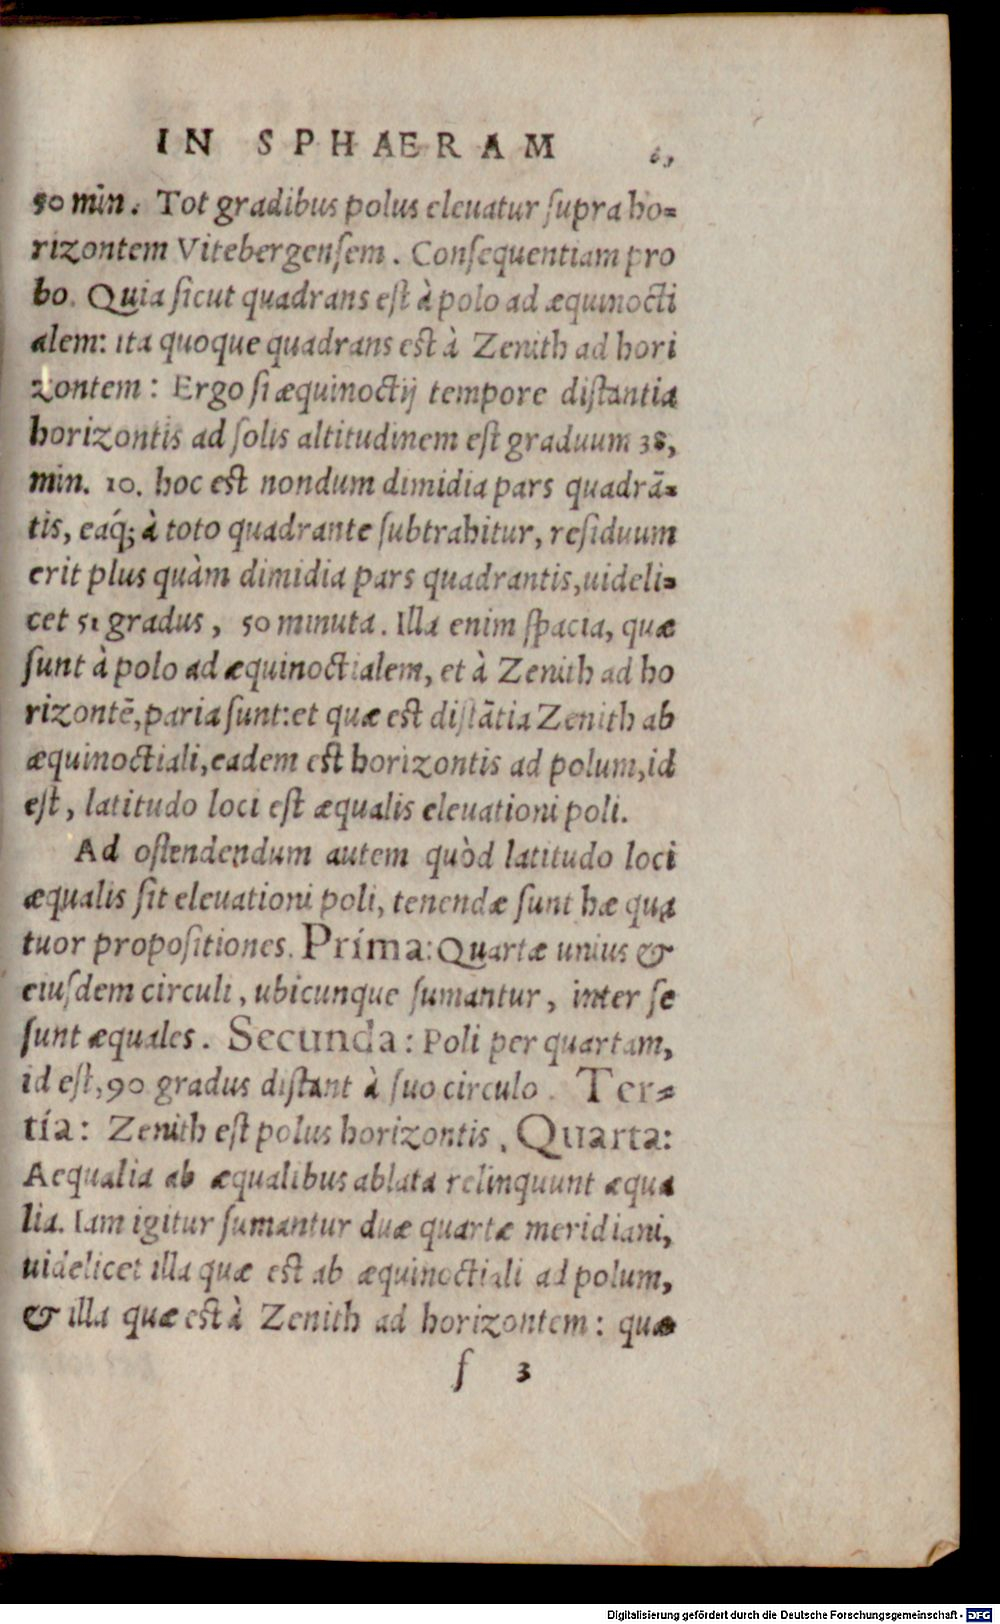 IN SPHAERAM
50 min. Tot gradibus polus eleuatur ſupra ho=
rizontem Vitebergenſem. Conſequentiam pro
bo. Quia ſicut quadrans eſt à polo ad æquinocti
alem: ita quoque quadrans est à Zenith ad hori
zontem: Ergo ſi æquinoctij tempore diſtantia
horizontis ad ſolis altitudinem eſt graduum 38,
min. 10. hoc est nondum dimidia pars quadrã=
tis, eaq́; à toto quadrante ſubtrahitur, reſiduum
erit plus quàm dimidia pars quadrantis, uideli=
cet 51 gradus, 50 minuta. Illa enim ſpacia, quæ
ſunt à polo ad æquinoctialem, et à Zenith ad ho
rizontẽ, paria ſunt: et quæ est diſtãtia Zenith ab
æquinoctiali, eadem est horizontis ad polum, id
eſt, latitudo loci eſt æqualis eleuationi poli.
Ad oſtendendum autem quòd latitudo loci
æqualis ſit eleuationi poli, tenendæ ſunt hæ qua
tuor propoſitiones. Prima: Quartæ unius &
eiuſdem circuli, ubicunque ſumantur, inter ſe
ſunt æquales. Secunda: Poli per quartam,
id eſt, 90 gradus diſtant à ſuo circulo. Ter=
tia: Zenith eſt polus horizontis. Quarta:
Aequalia ab æqualibus ablata relinquunt æqua
lia. Iam igitur ſumantur duæ quartæ meridiani,
uidelicet illa quæ est ab æquinoctiali ad polum,
& illa quæ est à Zenith ad horizontem: quæ
ſ 3
Digitalisierung gefördert durch die Deutsche Forschungsgemeinschaft - DFG